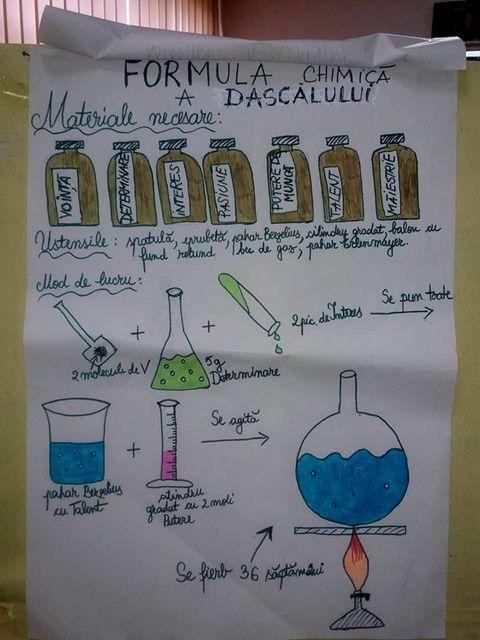 FORMULA CHIMICA
A DASCĂLULUI
Materiale necesare:
VOINȚĂ
DETERMINARE
INTERES
PASIUNE
PUTERE DE MUNCĂ
TALENT
MĂIESTRIE
Ustensile: spatulă, eprubetă, pahar Berzelius, cilindru gradat, balon cu
fund rotund, bec de gaz, pahar Erlenmayer.
Mod de lucru:
+
+
2 pic. de Interes
Se pun toate
2 molecule de V
5g
Determinare
+
Se agită
pahar Berzelius
cu Talent
cilindru
gradat cu 2 moli
Putere
Se fierb 36 săptămâni